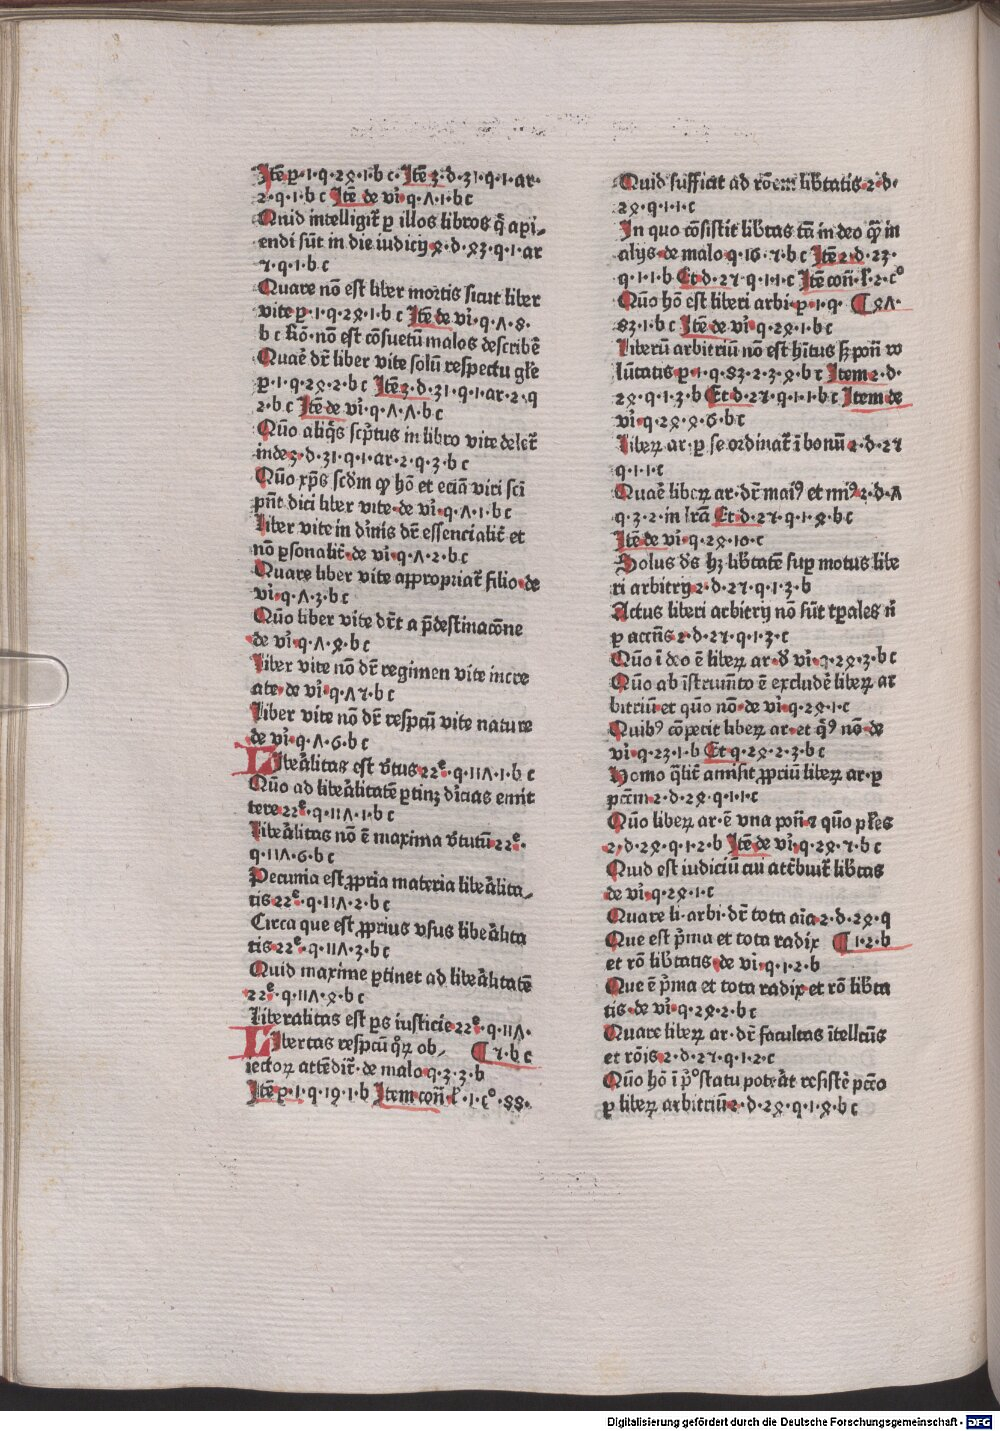 Itē ꝑ·1·q·2ꝝ·1·b c· Itē 3·d·31·q·1·ar·
2·q·1·b c Itē de vi͛·q·ʌ·1·b c
Quid intelligit͛ ꝑ illos libros q̄ aꝑi-
endi sūt in die iudicij ꝝ·d·ꝝ3·q·1·ar
7·q·1·b c
Quare nō est liber mortis sicut liber
vite ꝑ·1·q·2ꝝ·1·b c Itē de vi͛·q·ʌ·8·
b c Rō· nō est cōsuetū malos describē
Quaē dr̄ liber vite solū respectu gl̄e
ꝑ·1·q·2ꝝ·2·b c Itē 3·d·31·q·1·ar·2·q
2·b c Itē de vi͛·q·ʌ·ʌ·b c
Qūo aliq̄s scp̄tus in libro vite delet͛
inde 3·d·31·q·1·ar·2·q·3·b c
Qūo xp̄s scd̄m ꝙ hō et eciā viri sci
pn̄t dici liber vite· de vi͛·q·ʌ·1·b c
Liber vite in dīnis dr̄ essencialit͛ et
nō ꝑsonalit͛· de vi͛·q·ʌ·2·b c
Quare liber vite appropriat͛ filio· de
vi͛·q·ʌ·3·b c
Qūo liber vite dr̄t a p̄destinacōne
de vi͛·q·ʌ·ꝝ·b c
Liber vite nō dr̄ regimen vite incre
ate· de vi͛·q·ʌ7·b c
Liber vite nō dr̄ respcū vite nature
de vi͛·q·ʌ·6·b c
Libe͛alitas est v͛tus 22ͤ·q·11ʌ·1·b c
Qūo ad libe͛alitatē ꝑtinꝫ diīcias emit
tere 22ͤ·q·11ʌ·1·b c
Libe͛alitas nō ē maxima v͛tutū 22ͤ·
q·11ʌ·6·b c
Pecunia est ꝓpria materia libe͛alita-
tis 22ͤ·q·11ʌ·2·b c
Circa que est ꝓprius vsus libe͛alita
tis 22ͤ·q·11ʌ·3·b c
Quid maxime ꝑtinet ad libe͛alitatē
22ͤ·q·11ʌ·ꝝ·b c
Liberalitas est ꝑs iusticie 22ͤ·q·11ʌ·
Libertas respcū q̊ꝝ ob- ¶ 7·b c
iectoꝝ attēdit͛· de malo q·3·3·b
Itē ꝑ·1·q·19·1·b Item con̄·l̄·1·cº·88·
Quid sufficit ad rōem lib͛tatis 2·d·
2ꝝ·q·1·1·c
In quo cōsistit lib͛tas tā in deo q̄ȝ in
alijs· de malo q·16·7·b c Itē 2·d·23·
q·1·1·b Et d·27·q·1·1·c Itē con̄·l̄·2·cº
Qūo hō est liberi arbi· ꝑ·1·q· ¶ ꝝʌ·
83·1·b c Itē de vi͛·q·2ꝝ·1·b c
Liberū arbitriū nō est hītus sꝫ pon̄ vo
lūtatis ꝑ·1·q·83·2·3·ꝝ·b c Item 2·d·
2ꝝ·q·1·3·b Et d·27·q·1·1·b c Item de
vi͛·q·2ꝝ·ꝝ·6·b c
Liberꝝ ar· ꝑ se ordinat͛ ī bonū 2·d·27
q·1·1·c
Quaē liberꝝ ar· dr̄ maiꝰ et miꝰ 2·d·ʌ
q·3·2· in lr̄a Et d·27·q·1·ꝝ·b c
Itē de vi͛·q·2ꝝ·10·c
Solus dꝰs hꝫ lib͛tatē suꝑ motus libe
ri arbitrij 2·d·27·q·1·3·b
Actus liberi arbitrij nō sūt tꝑales n̄
ꝑ accn̄s 2·d·27·q·1·3·c
Qūo ī deo ē liberꝝ ar· d͛ vi͛·q·2ꝝ·3·b c
Qūo ab īstrumēto ē excludē liberꝝ ar
bitriū et quo nō· de vi͛·q·2ꝝ·1·c
Quibꝰ cōpetit liberꝝ ar· et q̄ꝰ nō· de
vi͛·q·23·1·b Et q·2ꝝ·2·3·b c
Homo q̄lit͛ amisit ꝓpriū liberꝝ ar· ꝑ
pcc̄m 2·d·2ꝝ·q·1·1·c
Qūo liberꝝ ar· ē vna pon̄ ⁊ qūo pl͛es
2·d·2ꝝ·q·1·2·b Itē de vi͛·q·2ꝝ·7·b c
Quid est iudiciū cui attribuit͛ lib͛tas
de vi͛·q·2ꝝ·1·c
Quare li· arbi· dr̄ tota aīa 2·d·2ꝝ·q
Que est p͛ma et tota radix ¶ 1·2·b
et rō lib͛tatis· de vi͛·q·1·2·b
Que ē p͛ma et tota radix et rō lib͛ta
tis· de vi͛·q·2ꝝ·2·b c
Quare liberꝝ ar· dr̄ facultas ītellcūs
et rōis 2·d·27·q·1·2·c
Qūo hō ī p͛º statu pote͛at resistē pccō
ꝑ liberꝝ arbitriū 2·d·2ꝝ·q·1·ꝝ·b c
Digitalisierung gefördert durch die Deutsche Forschungsgemeinschaft - DFG